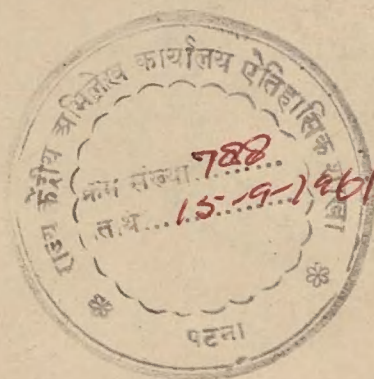 राज्य केंद्रीय अभिलेख कार्यालय ऐतिहासिक शाखा
क्रम संख्या 788
तिथि 15-9-1961
पटना